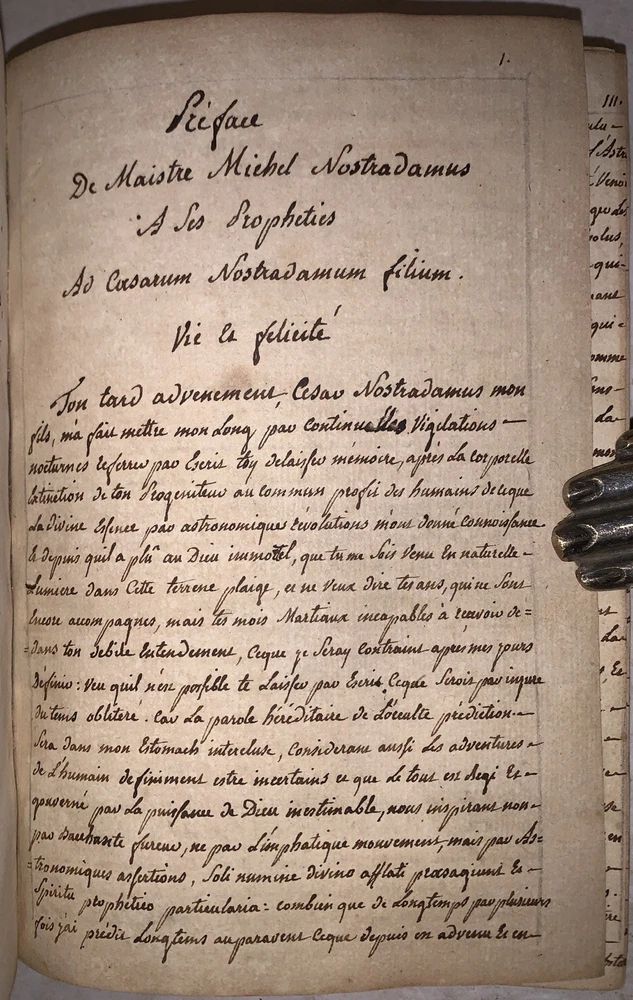 1.
Préface
De Maistre Michel Nostradamus
A Ses Propheties
Ad Cæsarum Nostradamum filium.
Vie Et felicité
Ton tard advenement Cesar Nostradamus mon
fils, m'a fait mettre mon Long par continuelles Vigilations
nocturnes referer par Escris toy delaisser mémoire, après La corporelle
Extinction de ton Progeniteur au commun profit des humains de ceque
La divine Essence par astronomiques révolutions m'ont donné connoissance
Et depuis qu'il a plû au Dieu immortel, que tu me sois Venu En naturelle
Lumiere dans Cette terrene plaige, et ne Veux dire tes ans, qui ne Sont
Encore accompagnes, mais tes mois Martiaux incapables à recevoir de=
=dans ton debile Entendement, Ceque je Seray Contraint apres mes jours
Définir: Veu quil n'est possible te Laisser par Escris Ceque Serois par injure
du tems oblitéré. Car La parole héréditaire de L'occulte prédiction
Sera dans mon Estomach intercluse, Considerant aussi Les adventures
de L'humain definiment estre incertains et que Le tout est Regi Et
gouverné par La puissance de Dieu inestimable, nous inspirant non
par Bacchante fureur, ne par Limphatique mouvement, mais par As=
=tronomiques assertions, Soli numine divino afflati præsagiunt Et
Spiritu prophetico particularia: combien que de Longtemps par plusieurs
fois j'ai prédit Longtems auparavent Ceque depuis est advenu Et en
III.